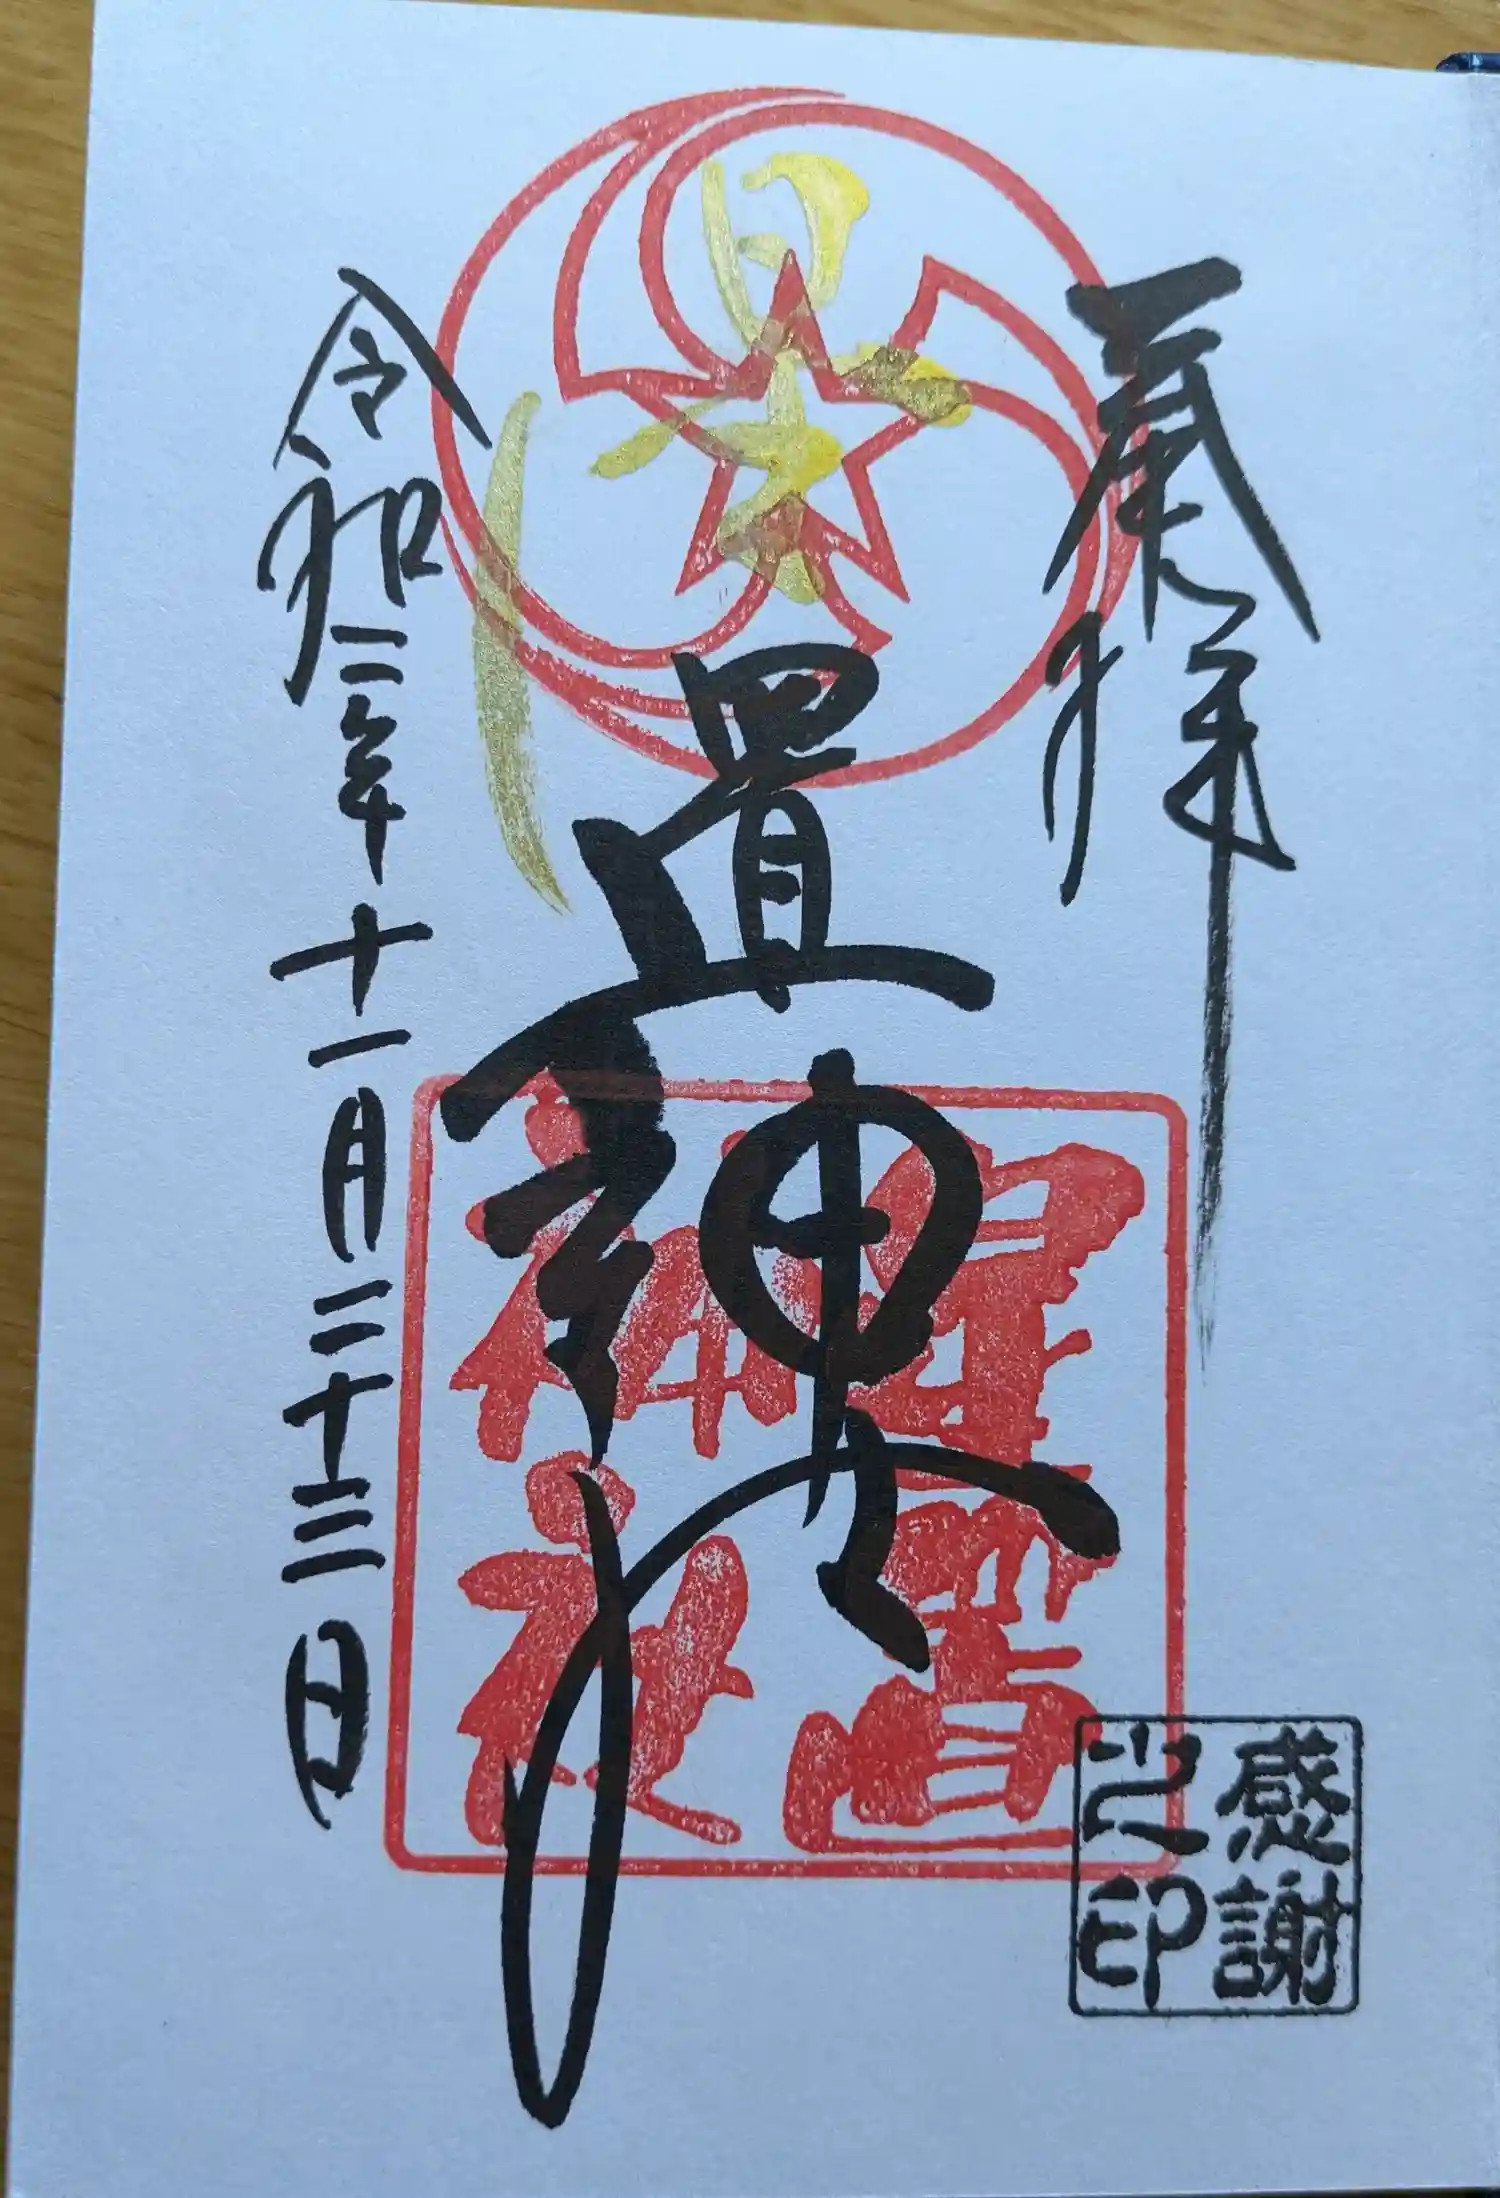 奉拝
星置神社
令和二年十一月二十三日
星置神社
感謝之印